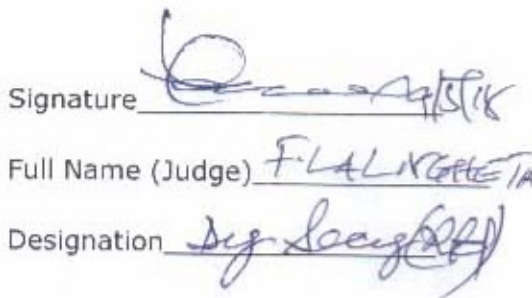 Signature 9/5/18
Full Name (Judge) F. LALNGHETA
Designation Dy Secy (Rtd)